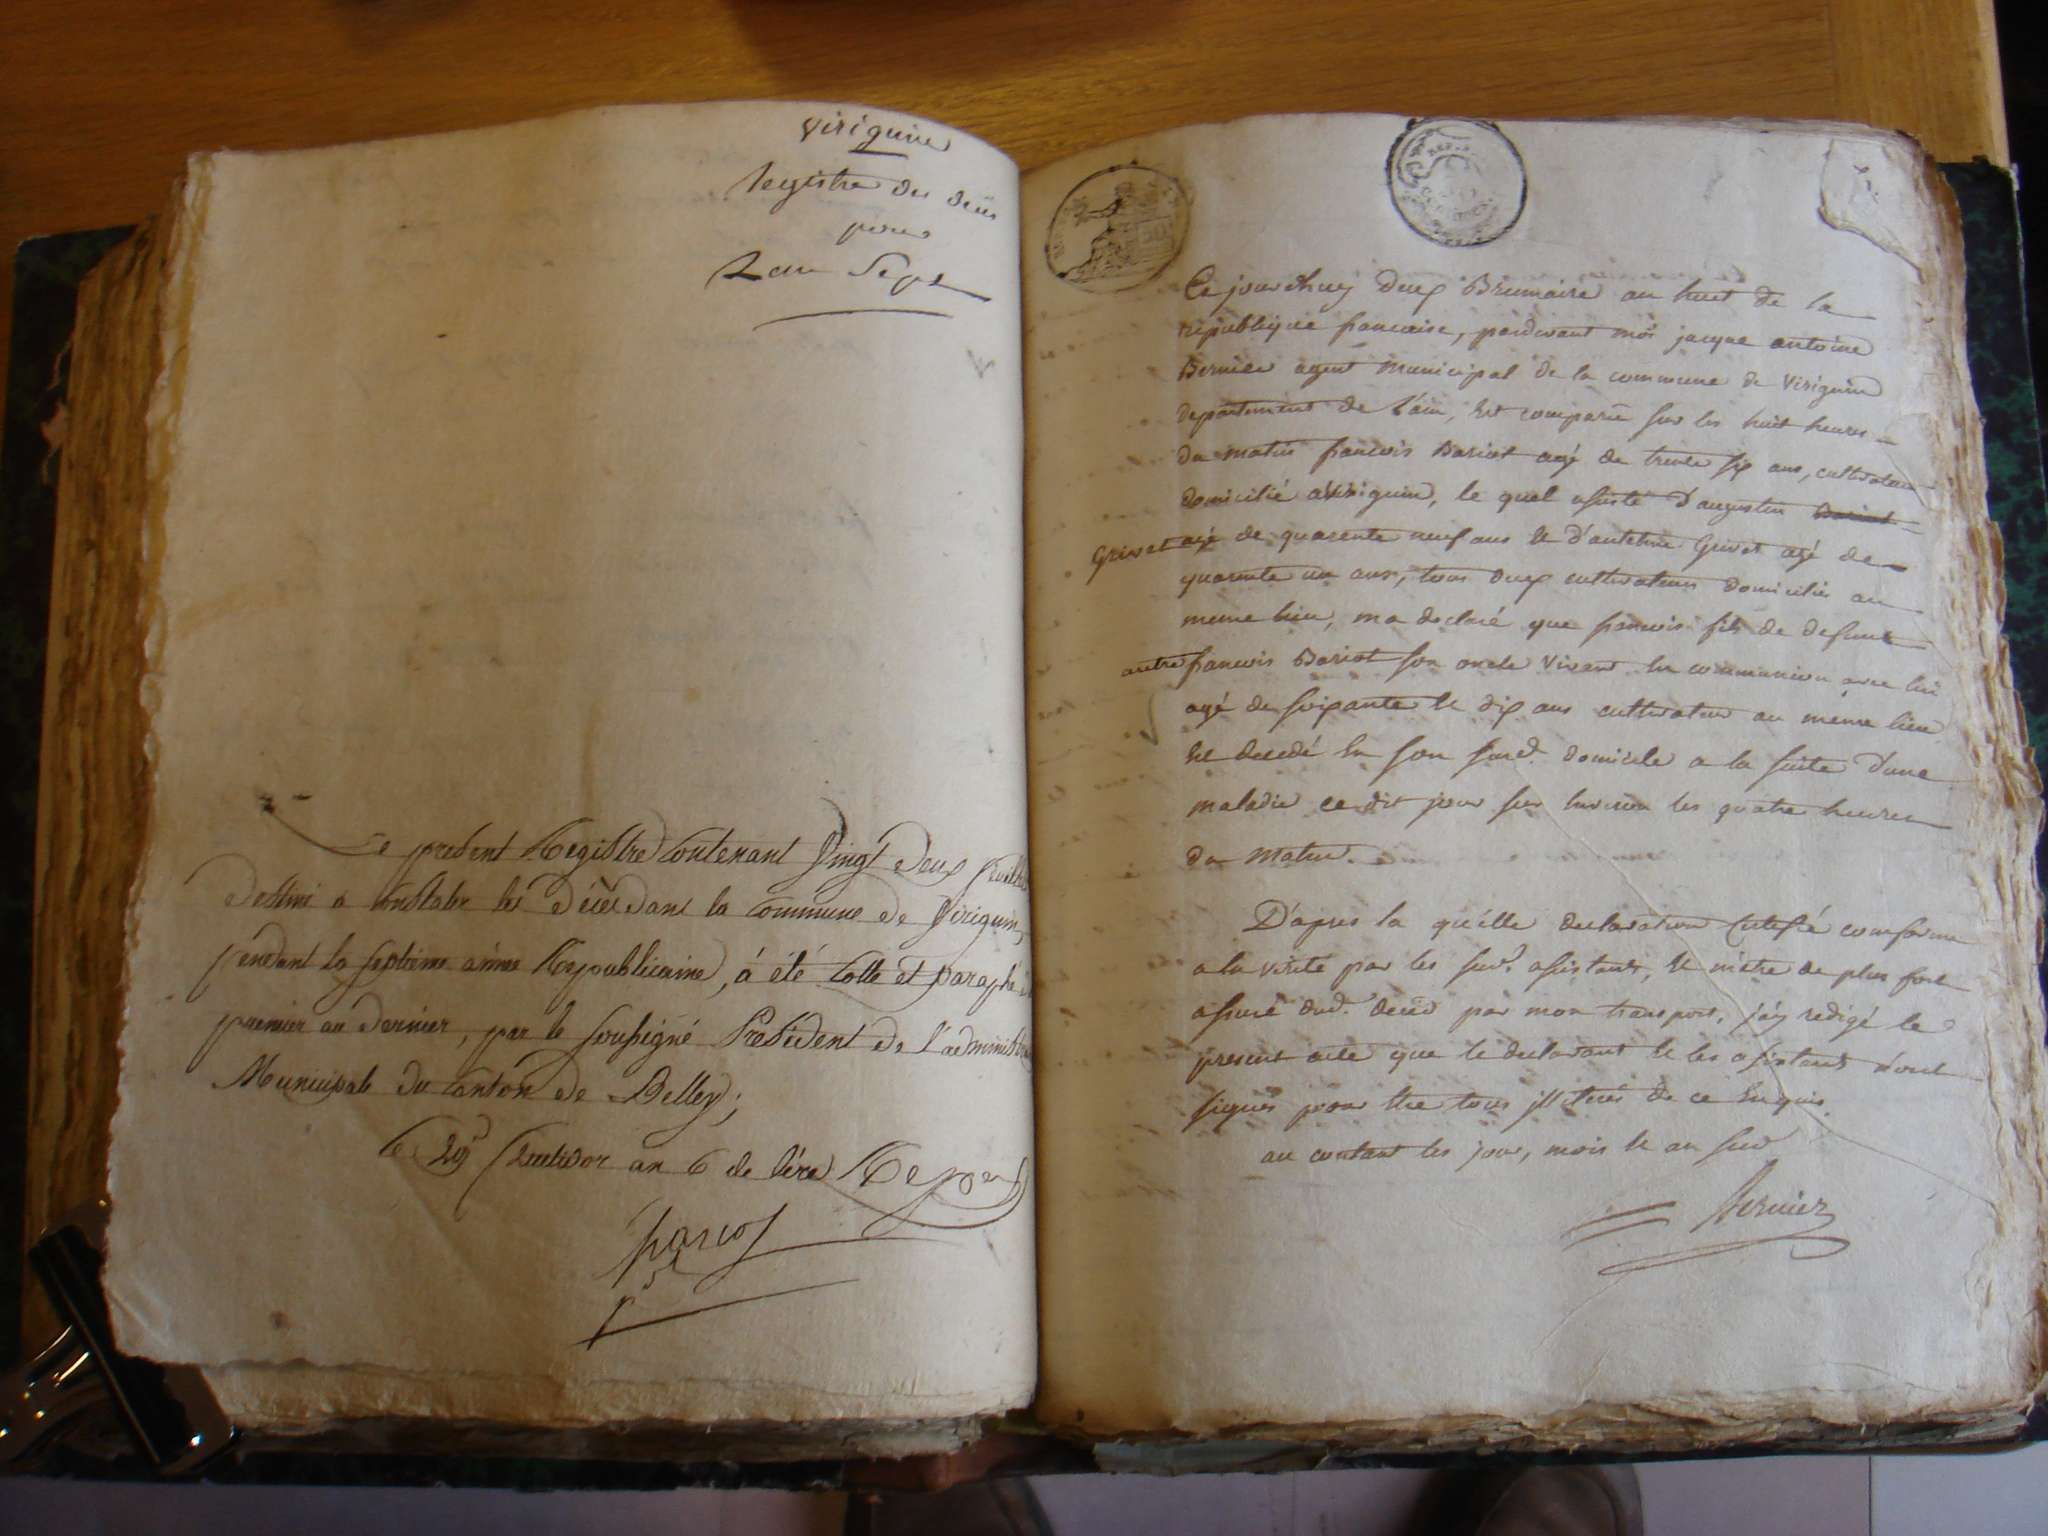 Viriguin
Registre des décès
pour
L an Sept
Le present Registre Contenant Vingt deux feuillets
destiné a Constater les Décès dans la Commune de Viriguin,
pendant la septieme année Republicaine, á été Cotté et paraphé du
premier au dernier, par le soussigné Président de l'administration
Municipale du Canton de Belley;
le 29 fructidor an 6 de l'ere Repub
Parcos
pst
Ce jourdhuy deux Brumaire an huit de la
republique francaise, pardevant moi jacque antoine
Bernier agent municipal de la commune de Viriguin
departement de l'ain, est comparu sur les huit heures
du matin francois Bariot agé de trente six ans, cultivateur
domicilié a Viriguin, le quel assisté d'augustin Bariot
Grivet agé de quarente neuf ans et d'antelme Grivet agé de
quarente un ans, tous deux cultivateurs domiciliés au
meme lieu, m'a declaré que francois fils de defunt
autre francois Bariot son oncle vivant en communion avec lui
agé de soixante et dix ans cultivateur au même lieu
est decedé en son susd. domicile a la suite d'une
maladie ce dit jour sur environ les quatre heures
du matin.
D'apres la quélle declaration certifié conforme
a la verité par les susd. assistants, et m'être de plus fort
assuré dud. decès par mon transport, j'ay redigé le
present acte que le declarant et les assistants n'ont
signés pour être tous illiterés de ce enquis.
au contant les jour, mois et an susd
Bernier